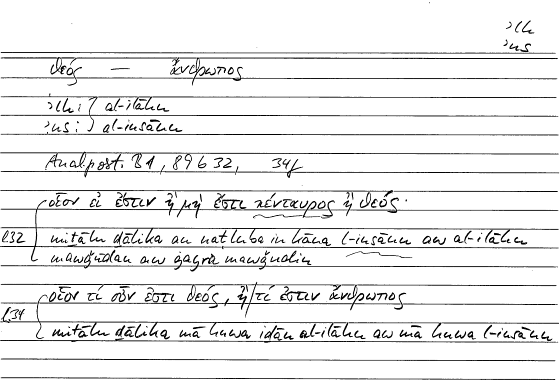 ʾlh
ʾns
θεός — ἄνθρωπος
ʾlh : } al-ilāhu
ʾns : } al-insānu
Anal. post. B 1, 89 b 32, 34f
οἷον εἰ ἔστιν ἢ μή ἐστι κένταυρος ἢ θεός·
l.32 miṯālu ḏālika an naṭluba in kāna l-insānu aw al-ilāhu
mawǧūdan aw ġayra mawǧūdin
οἷον τί οὖν ἐστι θεός, ἢ / τί ἐστιν ἄνθρωπος
l.34 miṯālu ḏālika mā huwa iḏan al-ilāhu aw mā huwa l-insānu